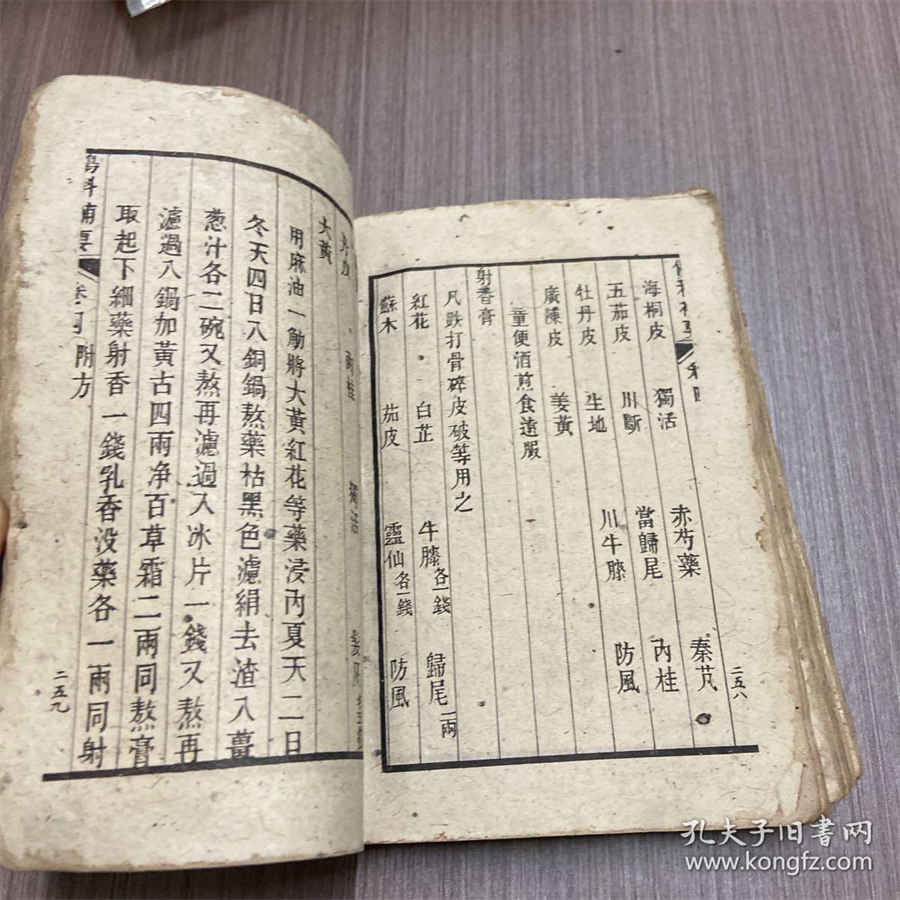 二五八
海桐皮 獨活 赤芍藥 秦艽
五茄皮 川斷 當歸尾 內桂
牡丹皮 生地 川牛膝 防風
廣陳皮 姜黃
童便酒煎食遠服
射香膏
凡跌打骨碎皮破等用之
紅花 白芷 牛膝各一錢 歸尾一兩
蘇木 茄皮 靈仙各一錢 防風
大黃
用麻油一觔將大黃紅花等藥浸內夏天二日
冬天四日入銅鍋熬藥枯黑色濾絹去渣入薑
葱汁各二碗又熬再濾過入冰片一錢又熬再
濾過入鍋加黃古四兩净百草霜二兩同熬膏
取起下細藥射香一錢乳香没藥各一兩同射
傷科補要 卷四 附方
二五九
孔夫子旧書网
www.kongfz.com